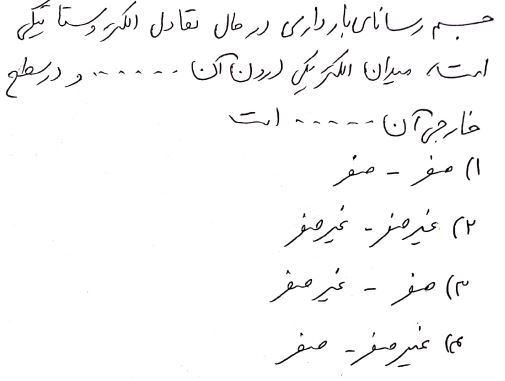 جسم رسانای بارداری در حال تعادل الکتروستاتیکی
است، میدان الکتریکی درون آن ...... و در سطح
خارجی آن ...... است
۱) صفر - صفر
۲) غیرصفر - غیرصفر
۳) صفر - غیرصفر
۴) غیرصفر - صفر